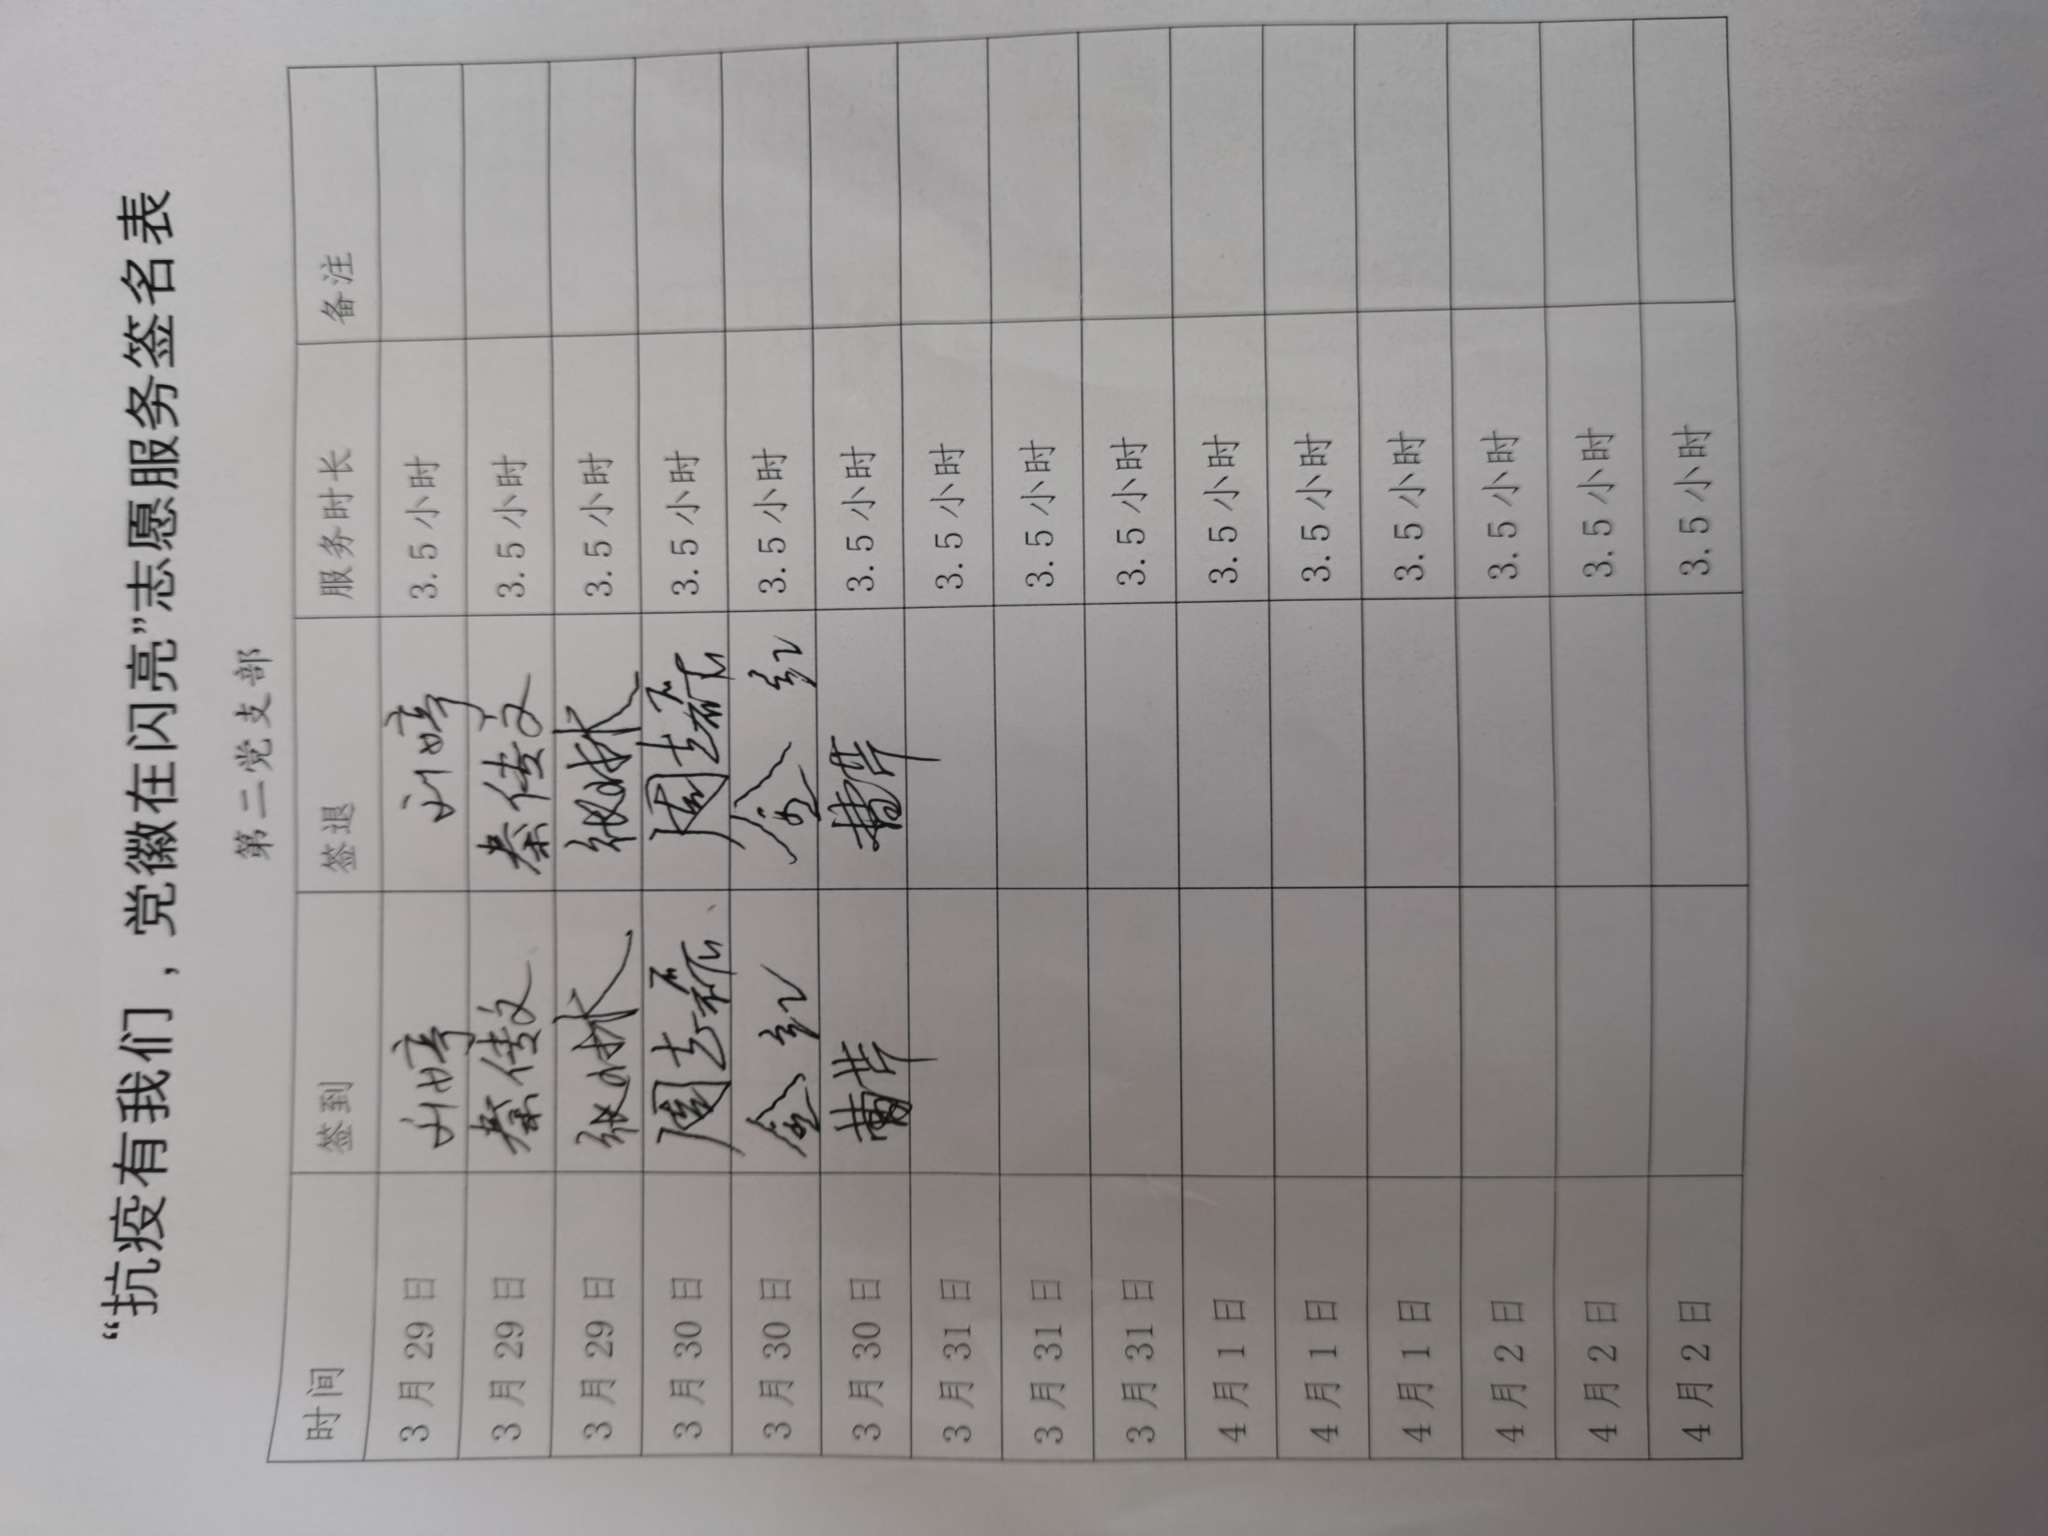 “抗疫有我们，党徽在闪亮”志愿服务签名表
第二党支部
时间 签到 签退 服务时长 备注
3月29日 刘婷 刘婷 3.5小时
3月29日 秦传文 秦传文 3.5小时
3月29日 3.5小时
3月30日 3.5小时
3月30日 金红 金红 3.5小时
3月30日 曹萍 曹萍 3.5小时
3月31日 3.5小时
3月31日 3.5小时
3月31日 3.5小时
4月1日 3.5小时
4月1日 3.5小时
4月1日 3.5小时
4月2日 3.5小时
4月2日 3.5小时
4月2日 3.5小时